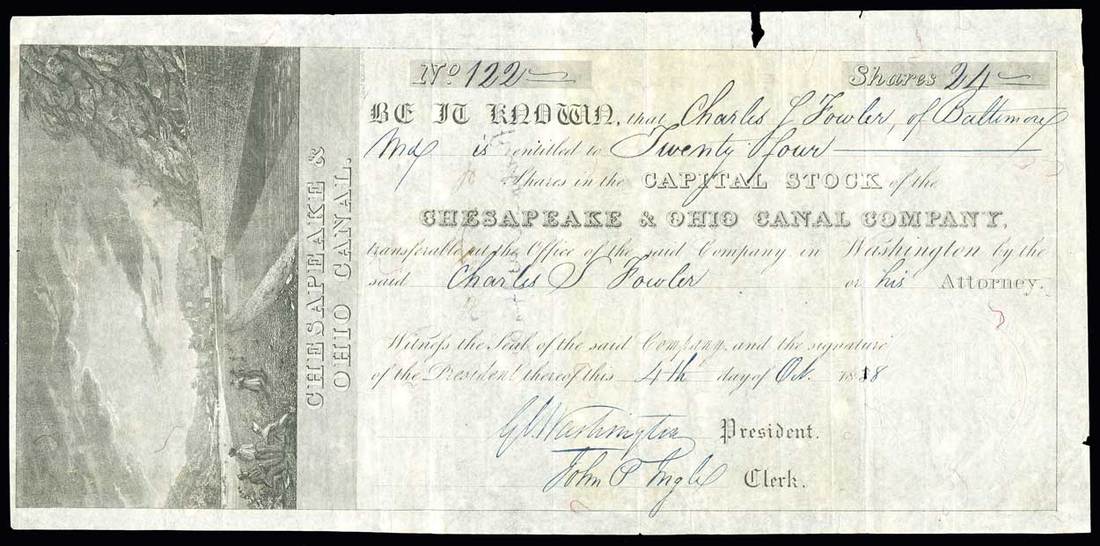 No 122
Shares 24
BE IT KNOWN, that Charles S Fowler, of Baltimore
Md is entitled to Twenty four
Shares in the CAPITAL STOCK of the
CHESAPEAKE & OHIO CANAL COMPANY,
transferable at the Office of the said Company in Washington by the
said Charles S Fowler or his Attorney.
Witness the Seal of the said Company and the signature
of the President thereof this 4th day of Oct. 1838
G C Washington President.
John P Ingle Clerk.
CHESAPEAKE &
OHIO CANAL.